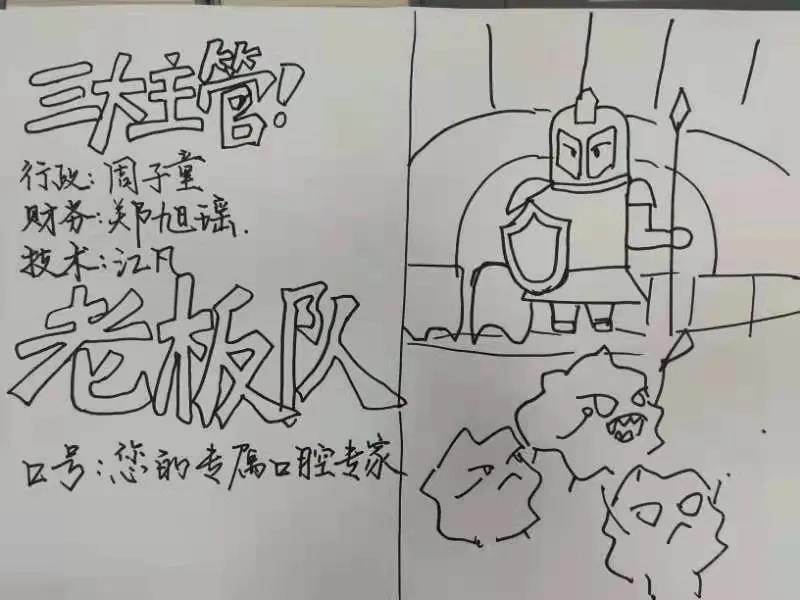 三大主管!
行政:周子童
财务:郑旭瑶.
技术:江凡
老板队
口号:您的专属口腔专家